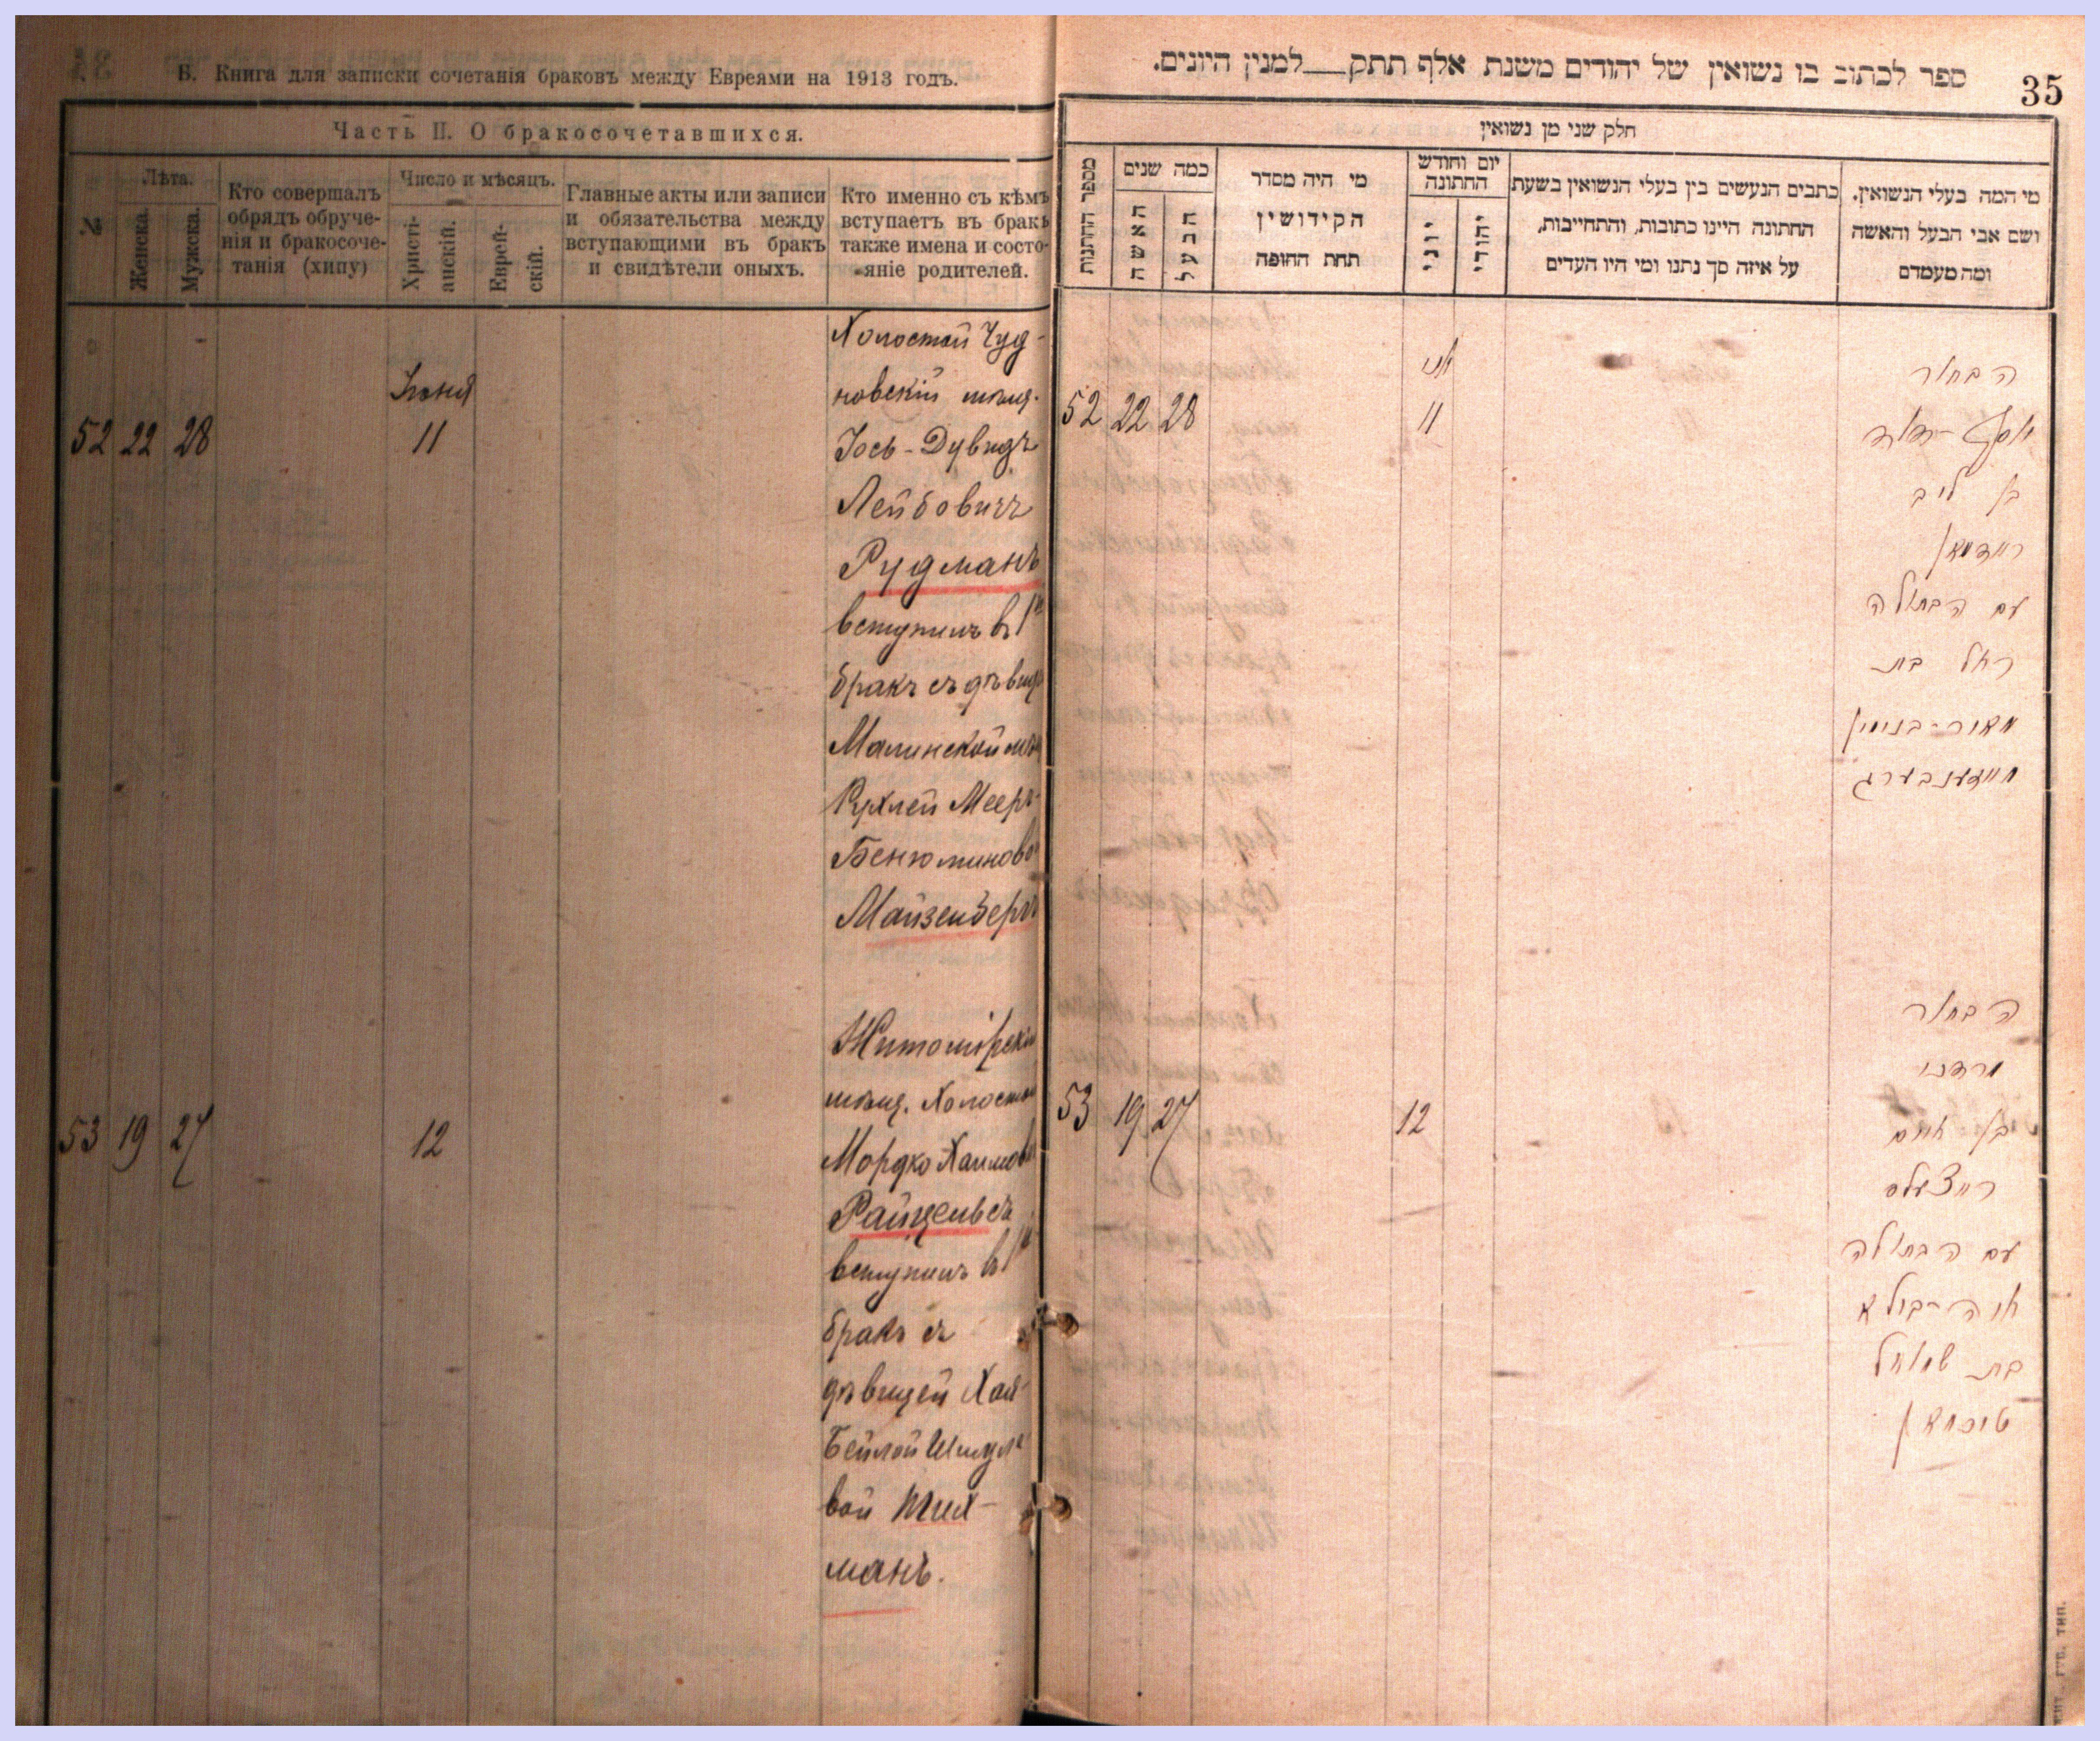 Б. Книга для записки сочетанія браковъ между Евреями на 1913 годъ.
Часть II. О бракосочетавшихся.
№
Лѣта.
Женска.
Мужска.
Кто совершалъ
обрядъ обруче-
нія и бракосоче-
танія (хипу)
Число и мѣсяцъ.
Христі-
анскій.
Еврей-
скій.
Главные акты или записи
и обязательства между
вступающими въ бракъ
и свидѣтели оныхъ.
Кто именно съ кѣмъ
вступаетъ въ бракъ
также имена и состо-
яніе родителей.
52 22 28
Іюня
11
Холостой Чуд-
новскій мѣщ.
Іось-Дувидъ
Лейбовичъ
Рудманъ
вступилъ въ 1й
бракъ съ дѣвиц
Малинской мѣщ
Рухлей Мееръ-
Бенюминово
Майзенберг
53 19 27
12
Житомірскій
мѣщ. Холостой
Мордко Хаимов
Райцельсъ
вступилъ въ 1й
бракъ съ
дѣвицей Хая-
Бейлой Шмуле
вой Тих-
манъ.
35
ספר לכתוב בו נשואין של יהודים משנת אלף תתק למנין היונים.
חלק שני מן נשואין
מספר החתנות
כמה שנים
האשה
הבעל
מי היה מסדר
הקידושין
תחת החופה
יום וחודש
החתונה
יוני
יהודי
כתבים הנעשים בין בעלי הנשואין בשעת
החתונה היינו כתובות, והתחייבות,
על איזה סך נתנו ומי היו העדים
מי המה בעלי הנשואין.
ושם אבי הבעל והאשה
ומה מעמדם
52 22 28
יוני
11
הבחור
יוסף-דוד
בן ליב
רוידמאן
עם הבתולה
רחל בת
מאיר-בנימין
מייזענבערג
53 19 27
12
הבחור
מרדכי
בן חיים
רייצעלס
עם הבתולה
חיה-ביילא
בת שמואל
טיכמאן
ГУБ. ТИП.